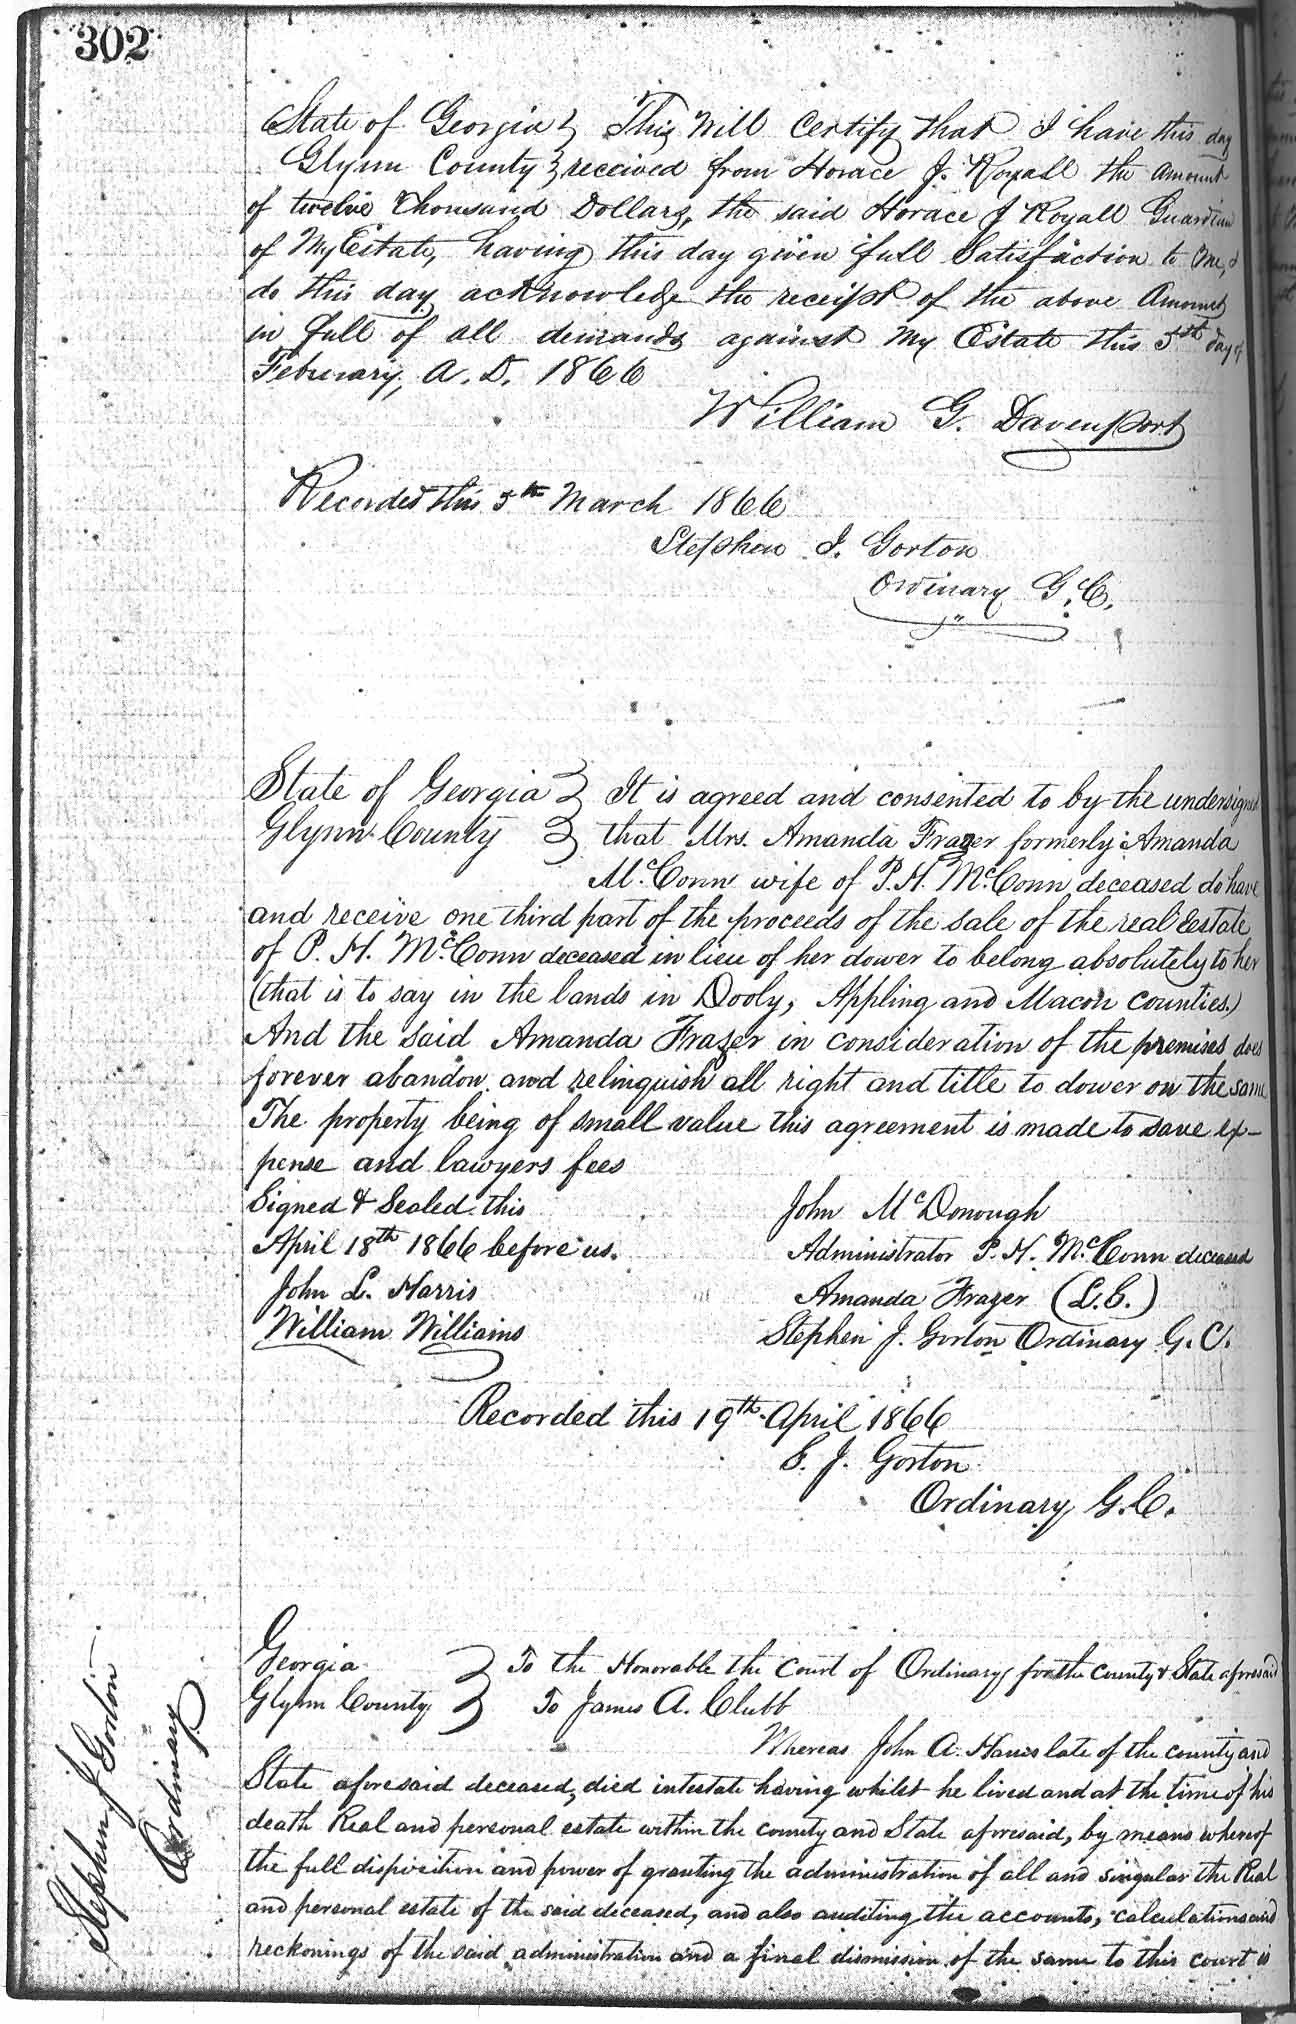 302
State of Georgia } This Will Certify that I have this day
Glynn County } received from Horace J. Royall the amount
of twelve Thousand Dollars, the said Horace J Royall Guardian
of My Estate, having this day given full Satisfaction to me, I
do this day acknowledge the receipt of the above Amount
in full of all demands against My Estate this 5th day of
February, A. D. 1866
William G. Davenport
Recorded this 5th March 1866
Stephen J. Gorton
Ordinary G. C.
State of Georgia } It is agreed and consented to by the undersigned
Glynn County } that Mrs. Amanda Frazer formerly Amanda
McConn wife of P. H. McConn deceased do have
and receive one third part of the proceeds of the sale of the real Estate
of P. H. McConn deceased in lieu of her dower to belong absolutely to her
(that is to say in the lands in Dooly, Appling and Macon Counties.)
And the said Amanda Frazer in consideration of the premises does
forever abandon and relinquish all right and title to dower on the same
The property being of small value this agreement is made to save ex-
pense and lawyers fees
Signed & Sealed this
April 18th 1866 before us.
John L. Harris
William Williams
John McDonough
Administrator P. H. McConn deceased
Amanda Frazer (L.S.)
Stephen J. Gorton Ordinary G. C.
Recorded this 19th April 1866
S. J. Gorton
Ordinary G. C.
Georgia } To the Honorable the Court of Ordinary for the County & State aforesaid
Glynn County } To James A. Clubb
Whereas John A. Harris late of the county and
State aforesaid deceased, died intestate having whilst he lived and at the time of his
death Real and personal estate within the county and State aforesaid, by means whereof
the full disposition and power of granting the administration of all and singular the Real
and personal estate of the said deceased, and also auditing the accounts, calculations and
reckonings of the said administration and a final dismission of the same to this court is
Stephen J Gorton
Ordinary